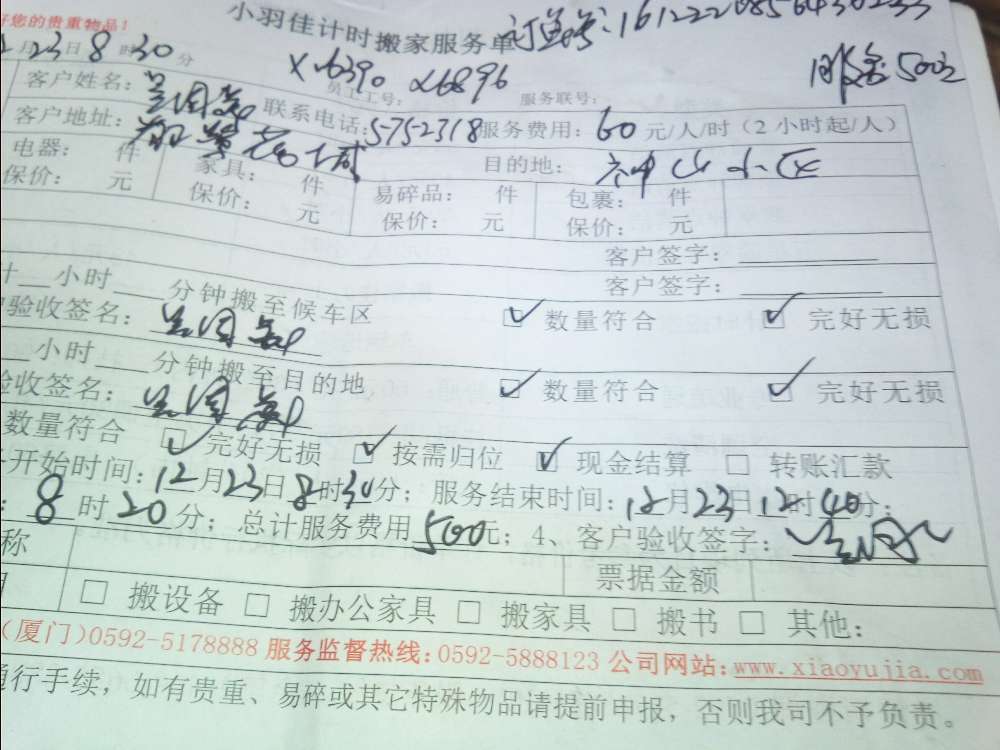 好您的贵重物品！
小羽佳计时搬家服务单 订单号：
月23日8时30分
X6390 X6896 服务 500元
客户姓名： 员工工号： 服务联号：
客户地址： 联系电话：5752318 服务费用：60元/人/时（2小时起/人）
电器： 件 家具： 件 目的地：神山小区
保价： 元 保价： 元 易碎品： 件 包裹： 件
保价： 元 保价： 元
客户签字：
客户签字：
计 小时 分钟搬至候车区
验收签名： 数量符合 完好无损
小时 分钟搬至目的地
验收签名： 数量符合 完好无损
数量符合 完好无损 按需归位 现金结算 转账汇款
开始时间：12月23日8时30分；服务结束时间：12月23日12时40分；
8时20分；总计服务费用500元；4、客户验收签字：
称 票据金额
搬设备 搬办公家具 搬家具 搬书 其他：
（厦门）0592-5178888 服务监督热线：0592-5888123 公司网站：www.xiaoyujia.com
通行手续，如有贵重、易碎或其它特殊物品请提前申报，否则我司不予负责。